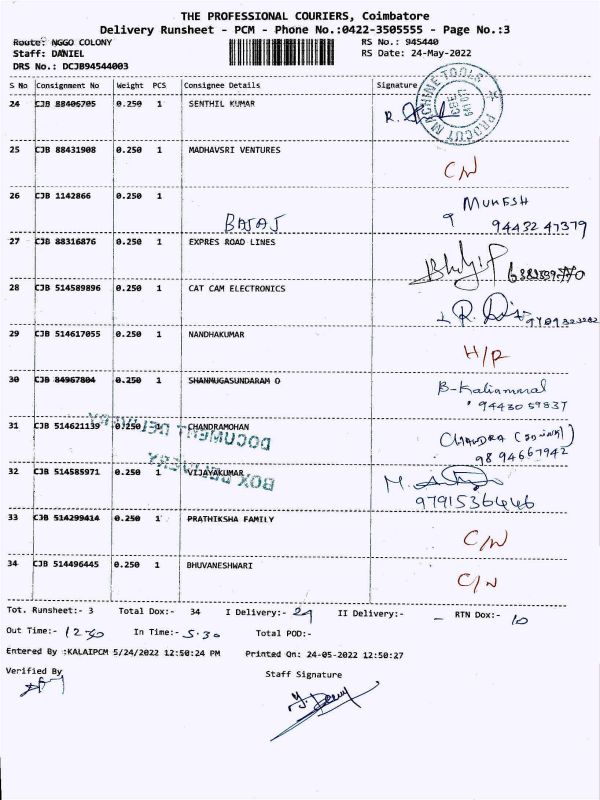 THE PROFESSIONAL COURIERS, Coimbatore
Delivery Runsheet - PCM - Phone No.:0422-3505555 - Page No.:3
Route: NGGO COLONY RS No.: 945440
Staff: DANIEL RS Date: 24-May-2022
DRS No.: DCJB94544003
S No Consignment No Weight PCS Consignee Details Signature
24 CJB 88406705 0.250 1 SENTHIL KUMAR R.
MACHINE TOOLS PROCUT
25 CJB 88431908 0.250 1 MADHAVSRI VENTURES
C/N
26 CJB 1142866 0.250 1 MUKESH
BAJAJ 9443247379
27 CJB 88316876 0.250 1 EXPRES ROAD LINES
28 CJB 514589896 0.250 1 CAT CAM ELECTRONICS
29 CJB 514617055 0.250 1 NANDHAKUMAR
H/R
30 CJB 84967804 0.250 1 SHANMUGASUNDARAM O
9443059837
31 CJB 514621139 0.250 1 CHANDRAMOHAN
DOCUMENT DELIVERY
CHANDRA
9894667942
32 CJB 514585971 0.250 1 VIJAYAKUMAR
BOX DELIVERY
9791536446
33 CJB 514299414 0.250 1 PRATHIKSHA FAMILY
C/N
34 CJB 514496445 0.250 1 BHUVANESHWARI
C/N
Tot. Runsheet:- 3 Total Dox:- 34 I Delivery:- 24 II Delivery:- - RTN Dox:- 10
Out Time:- 12-30 In Time:- 5.30 Total POD:-
Entered By :KALAIPCM 5/24/2022 12:50:24 PM Printed On: 24-05-2022 12:50:27
Verified By Staff Signature